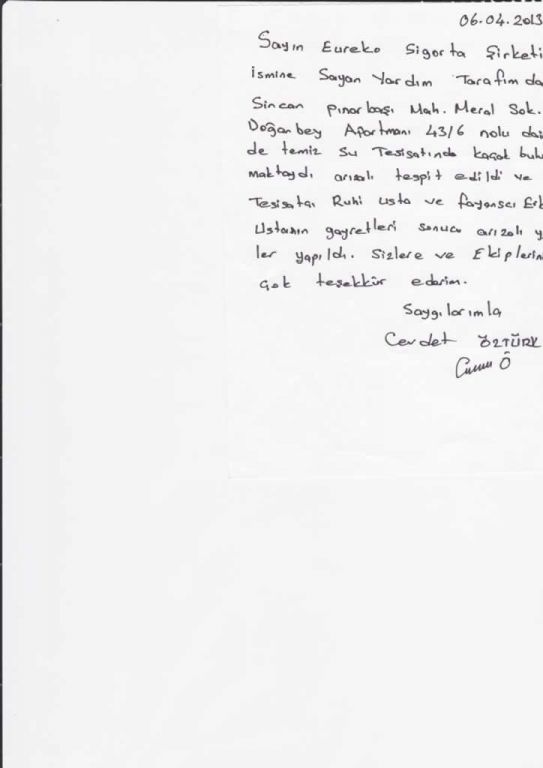 06.04.2013
Sayın Eureko Sigorta Şirketi
İsmine Sayan Yardım Tarafımda
Sincan Pınarbaşı Mah. Meral Sok.
Doğanbey Apartmanı 43/6 nolu dai
de temiz su Tesisatında kaçak bulu
maktaydı arızalı tespit edildi ve
Tesisatçı Ruhi usta ve fayansçı
Ustanın gayretleri sonucu arızalı y
ler yapıldı. Sizlere ve Ekiplerin
çok teşekkür ederim.
Saygılarımla
Cevdet ÖZTÜRK